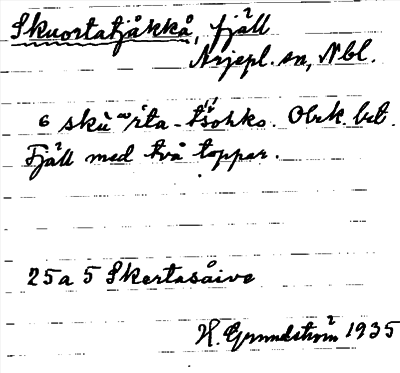 Skuortatjåkkå, fjäll
Arjepl. sn, Nbl.
6 Obek. bet.
Fjäll med två toppar.
25a 5 Skertasåive
H. Grundström 1935